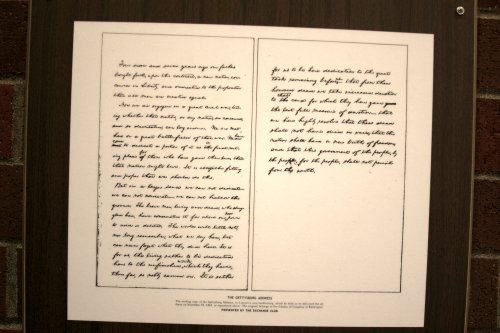 Four score and seven years ago our fathers
brought forth, upon this continent, a new nation, con-
ceived in Liberty, and dedicated to the proposition
that all men are created equal.
Now we are engaged in a great civil war, test-
ing whether that nation, or any nation, so conceived,
and so dedicated, can long endure. We are met
here on a great battle-field of that war. We have
come to dedicate a portion of it as a final rest-
ing place for those who here gave their lives that
that nation might live. It is altogether fitting
and proper that we should do this.
But in a larger sense we can not dedicate
we can not consecrate we can not hallow this
ground. The brave men, living and dead, who strug-
gled here, have consecrated it far above our poor
power to add or detract. The world will little note,
nor long remember, what we say here, but
can never forget what they did here. It is
for us, the living, rather to be dedicated
here to the unfinished work which they have,
thus far, so nobly carried on. It is rather
for us to be here dedicated to the great
task remaining before us that from these
honored dead we take increased devotion
to that cause for which they here gave
the last full measure of devotion that
we here highly resolve that these dead
shall not have died in vain; that this
nation shall have a new birth of freedom;
and that this government of the people, by
the people, for the people, shall not perish
from the earth.
THE GETTYSBURG ADDRESS
PRESENTED BY THE EXCHANGE CLUB